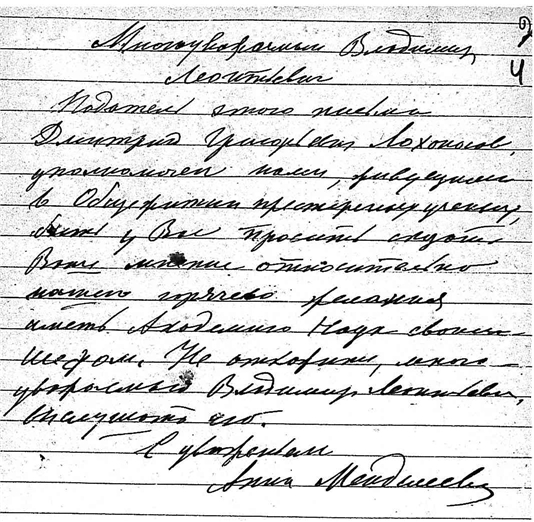 Многоуважаемый Владимир
Леонтьевич
Податель этого письма
Дмитрий Григорьевич
уполномочен нами, живущими
в Общежитии престарелых ученых,
быть у Вас просить сказать
Ваше мнение относительно
нашего горячего желания
иметь Академию Наук своим
шефом. Не откажите, много-
уважаемый Владимир Леонтьевич,
выслушать его.
С уважением
Анна Менделеева